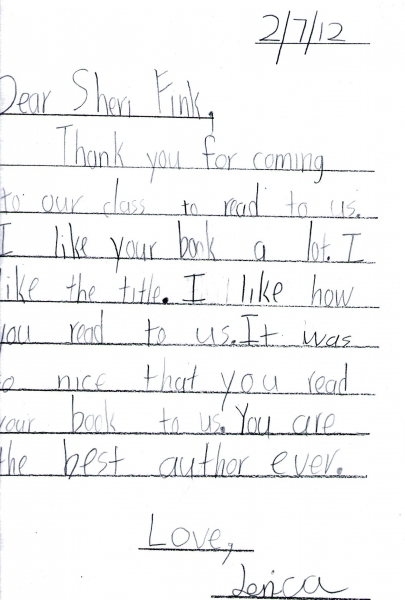 2/7/12
Dear Sheri Fink,
Thank you for coming
to our class to read to us.
I like your book a lot. I
like the title. I like how
you read to us. It was
so nice that you read
your book to us. You are
the best author ever.
Love,